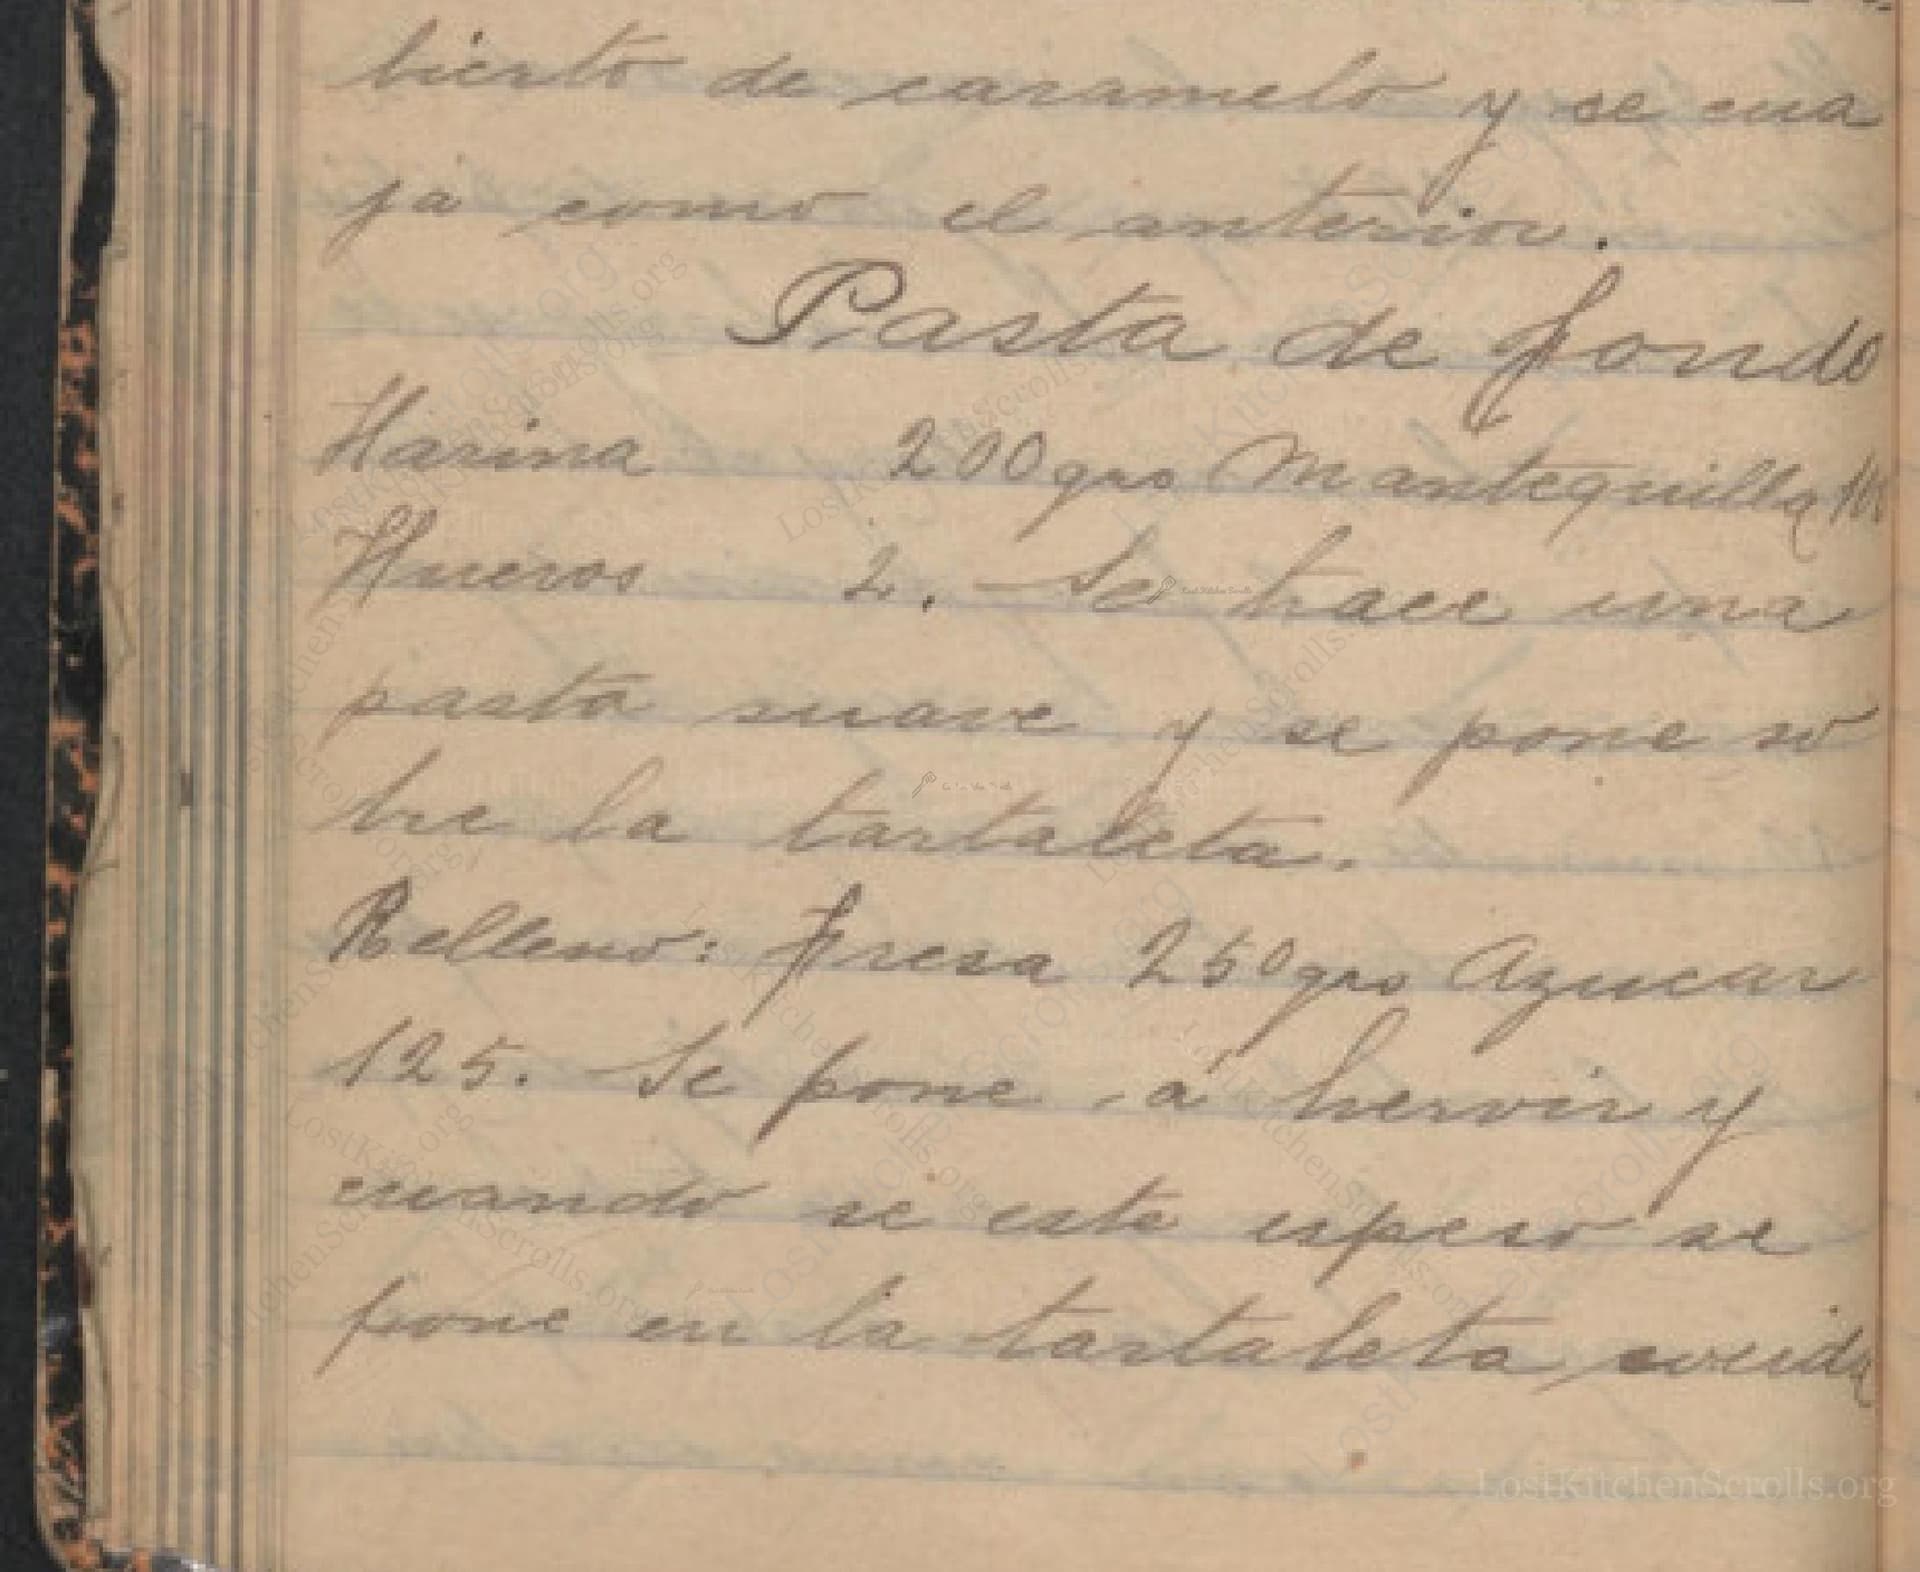 bierto de caramelo y se cua
ja como el anterior.
Pasta de fondo
Harina 200 grs Mantequilla 100
Huevos 2. Se hace una
pasta suave y se pone so
bre la tartaleta.
Relleno: Fresa 250 grs Azucar
125. Se pone á hervir y
cuando se este espeso se
pone en la tartaleta cocida
LostKitchenScrolls.org